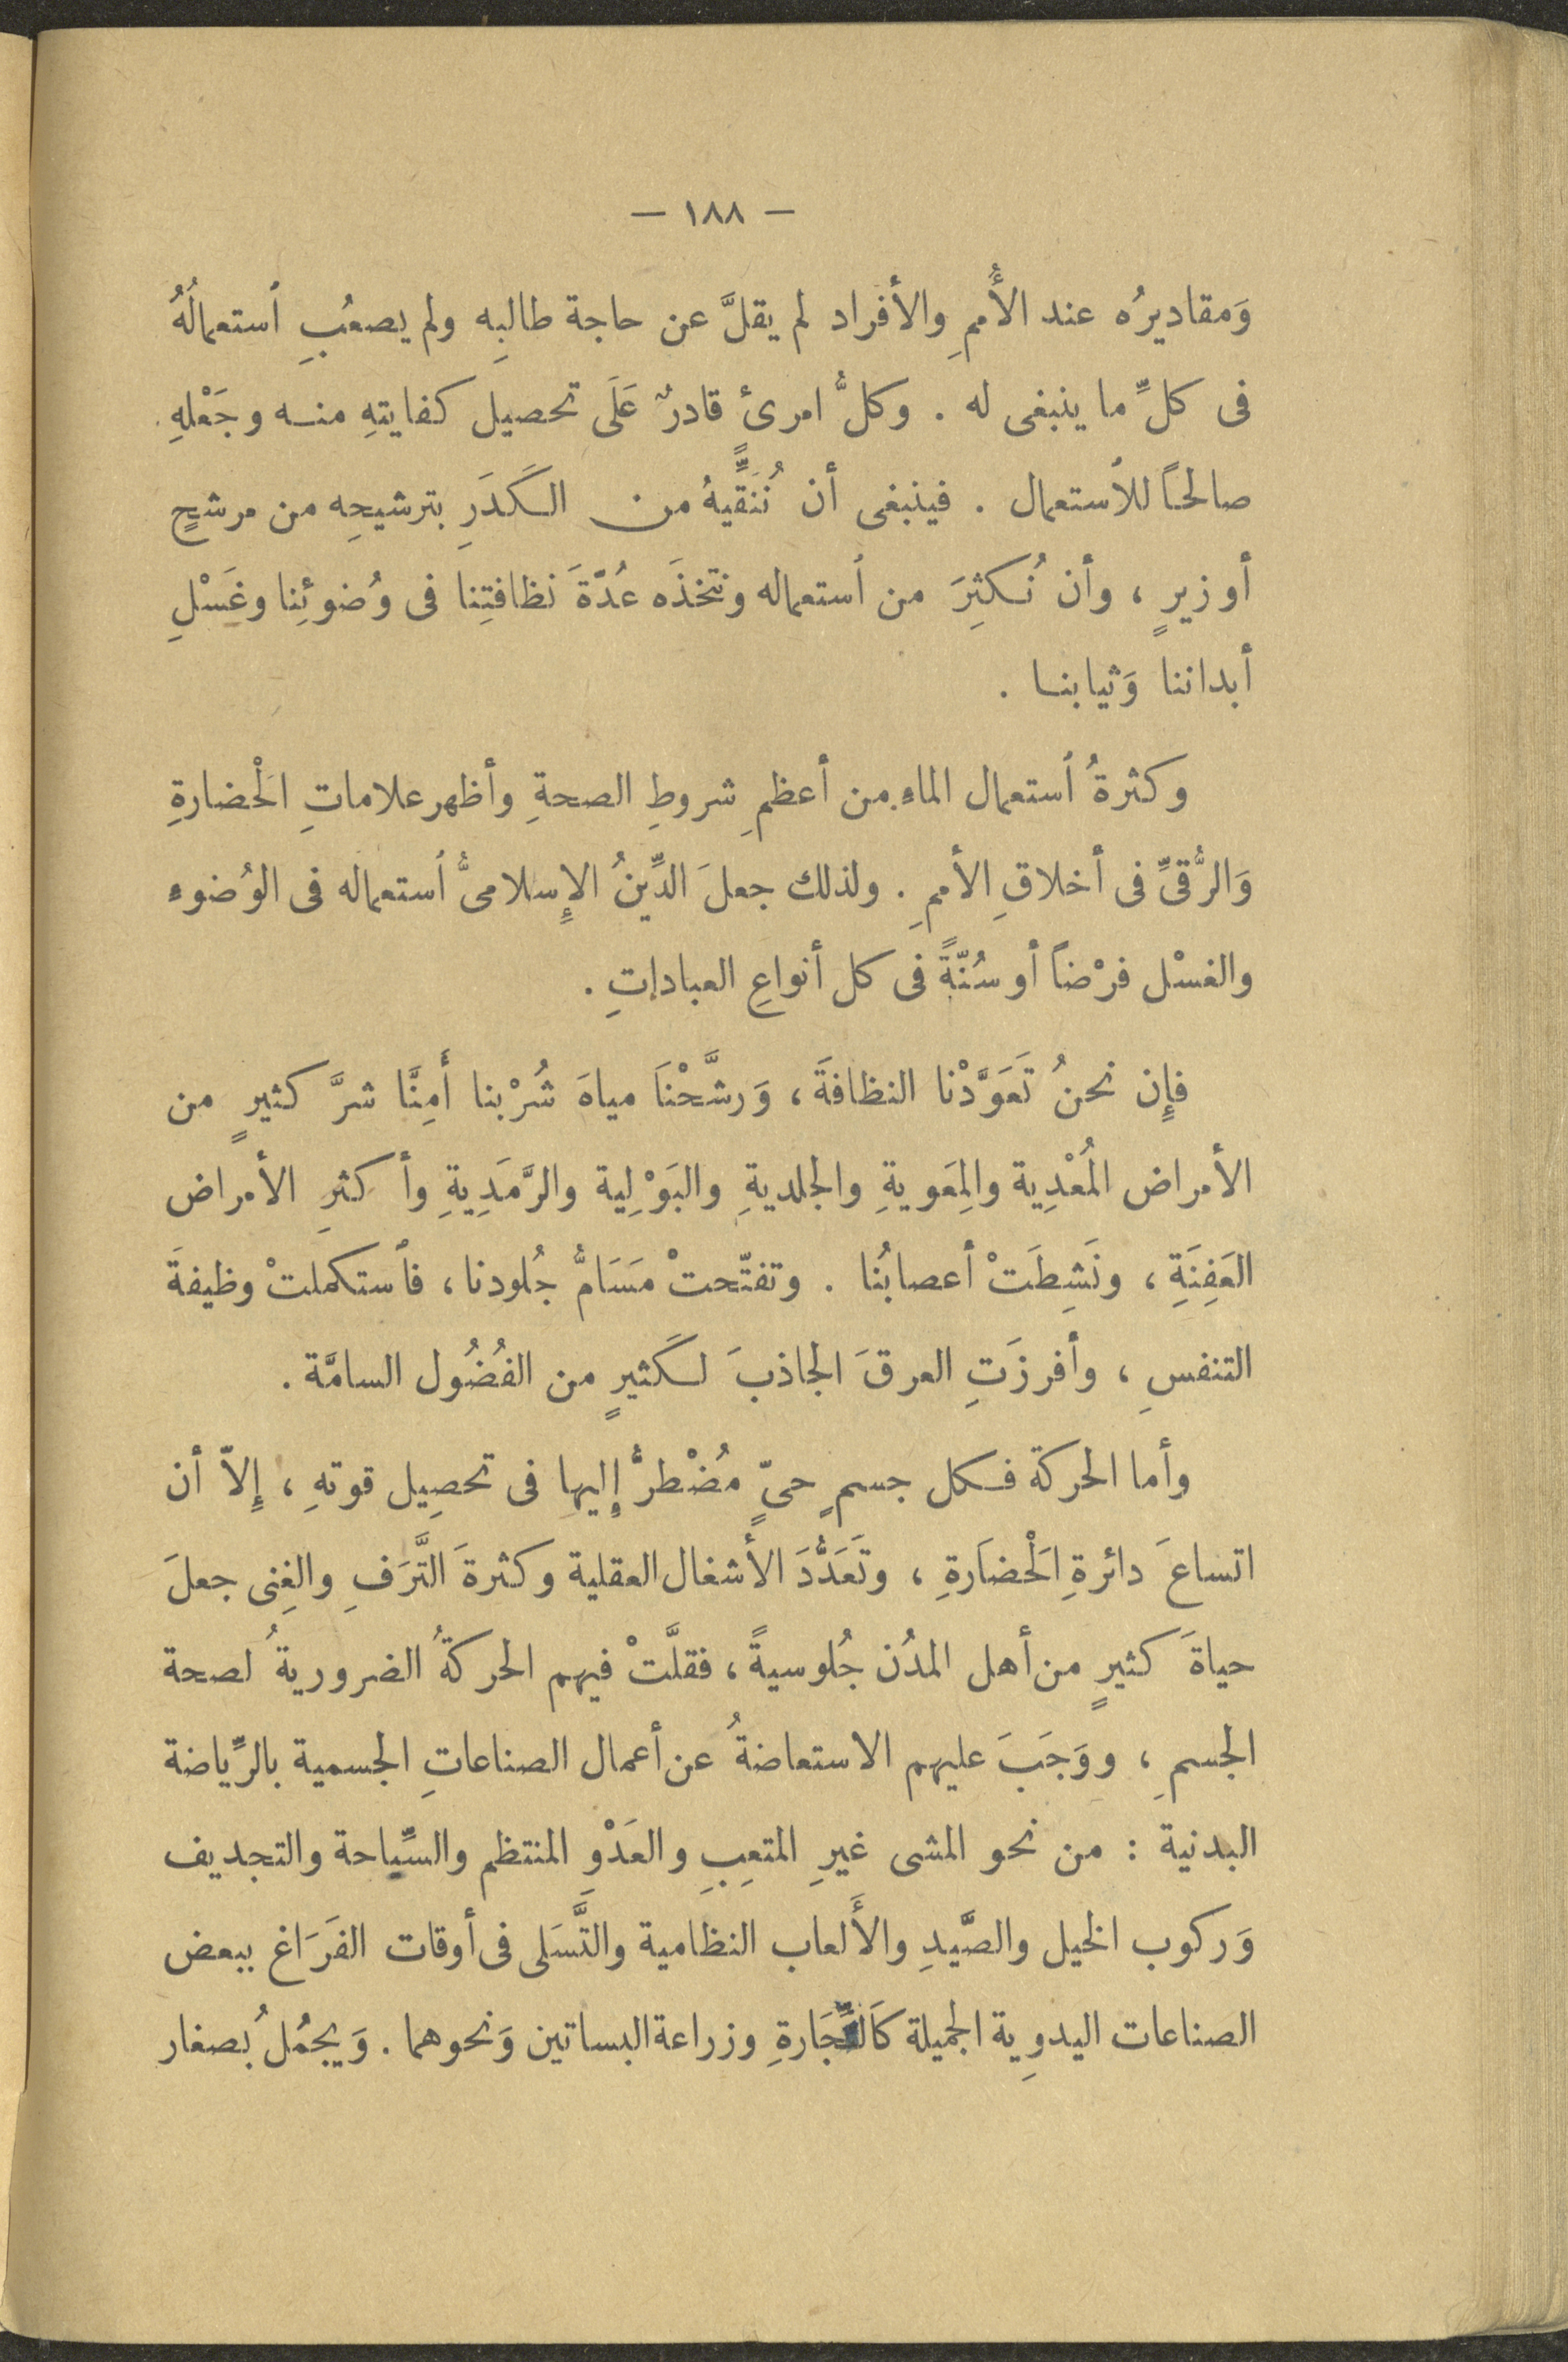 — ١٨٨ —
وَمقاديرُه عند الأُممِ والأفراد لم يقلَّ عن حاجة طالبِه ولم يصعُبِ ٱستعمالُهُ
فى كلِّ ما ينبغى له . وكلُّ امرئٍ قادرٌ عَلَى تحصيل كفايتهِ منه وجَعْلهِ
صالحًا للاستعمال . فينبغى أن نُنَقِّيهُ من الكَدَرِ بترشيحِه من مرشحٍ
أو زيرٍ ، وأن نُكثِرَ من ٱستعماله ونتخذَه عُدّةَ نظافتِنا فى وُضوئِنا وغَسْلِ
أبداننا وَثيابنا .
وكثرةُ ٱستعمال الماءِ من أعظمِ شروطِ الصحةِ وأظهر علاماتِ الْحَضارةِ
وَالرُّقىِّ فى أخلاقِ الأممِ . ولذلك جعلَ الدِّينُ الإِسلامىُّ ٱستعماله فى الوُضوء
والغسْل فرْضاً أو سُنّةً فى كل أنواعِ العباداتِ .
فإِن نحنُ تَعَوَّدْنا النظافةَ ، وَرشَّحْنَا مياهَ شُرْبنا أَمِنَّا شرَّ كثيرٍ من
الأمراض المُعْدِية والمِعَويةِ والجلديةِ والبَوْلِية والرَّمَدِيةِ وأكثرِ الأمراض
العَفِنَةِ ، ونَشِطَتْ أعصابُنا . وتفتّحتْ مَسَامُّ جُلودنا ، فٱستكملتْ وظيفةَ
التنفسِ ، وأفرزَتِ العرقَ الجاذبَ لكَثيرٍ من الفُضُول السامَّة .
وأما الحركة فكل جسمٍ حىٍّ مُضْطرٌّ إِليها فى تحصِيل قوتهِ ، إِلاّ أن
اتساعَ دائرةِ الْحَضَارةِ ، وتَعَدُّدَ الأشغال العقلية وكثرةَ التَّرَفِ والغِنى جعلَ
حياةَ كثيرٍ من أهل المدُن جُلوسيةً ، فقلَّتْ فيهم الحركةُ الضروريةُ لصحة
الجسمِ ، ووَجَبَ عليهم الاستعاضةُ عن أعمال الصناعاتِ الجسمية بالرِّياضة
البدنية : من نحو المشى غيرِ المتعِبِ والعَدْوِ المنتظم والسِّباحة والتجديف
وَركوب الخيل والصَّيدِ والأَلعاب النظامية والتَّسَلى فى أوقات الفَرَاغ ببعض
الصناعات اليدوِية الجميلة كَالنِّجَارةِ وزراعة البساتين وَنحوهما . وَيجمُلُ بصغار